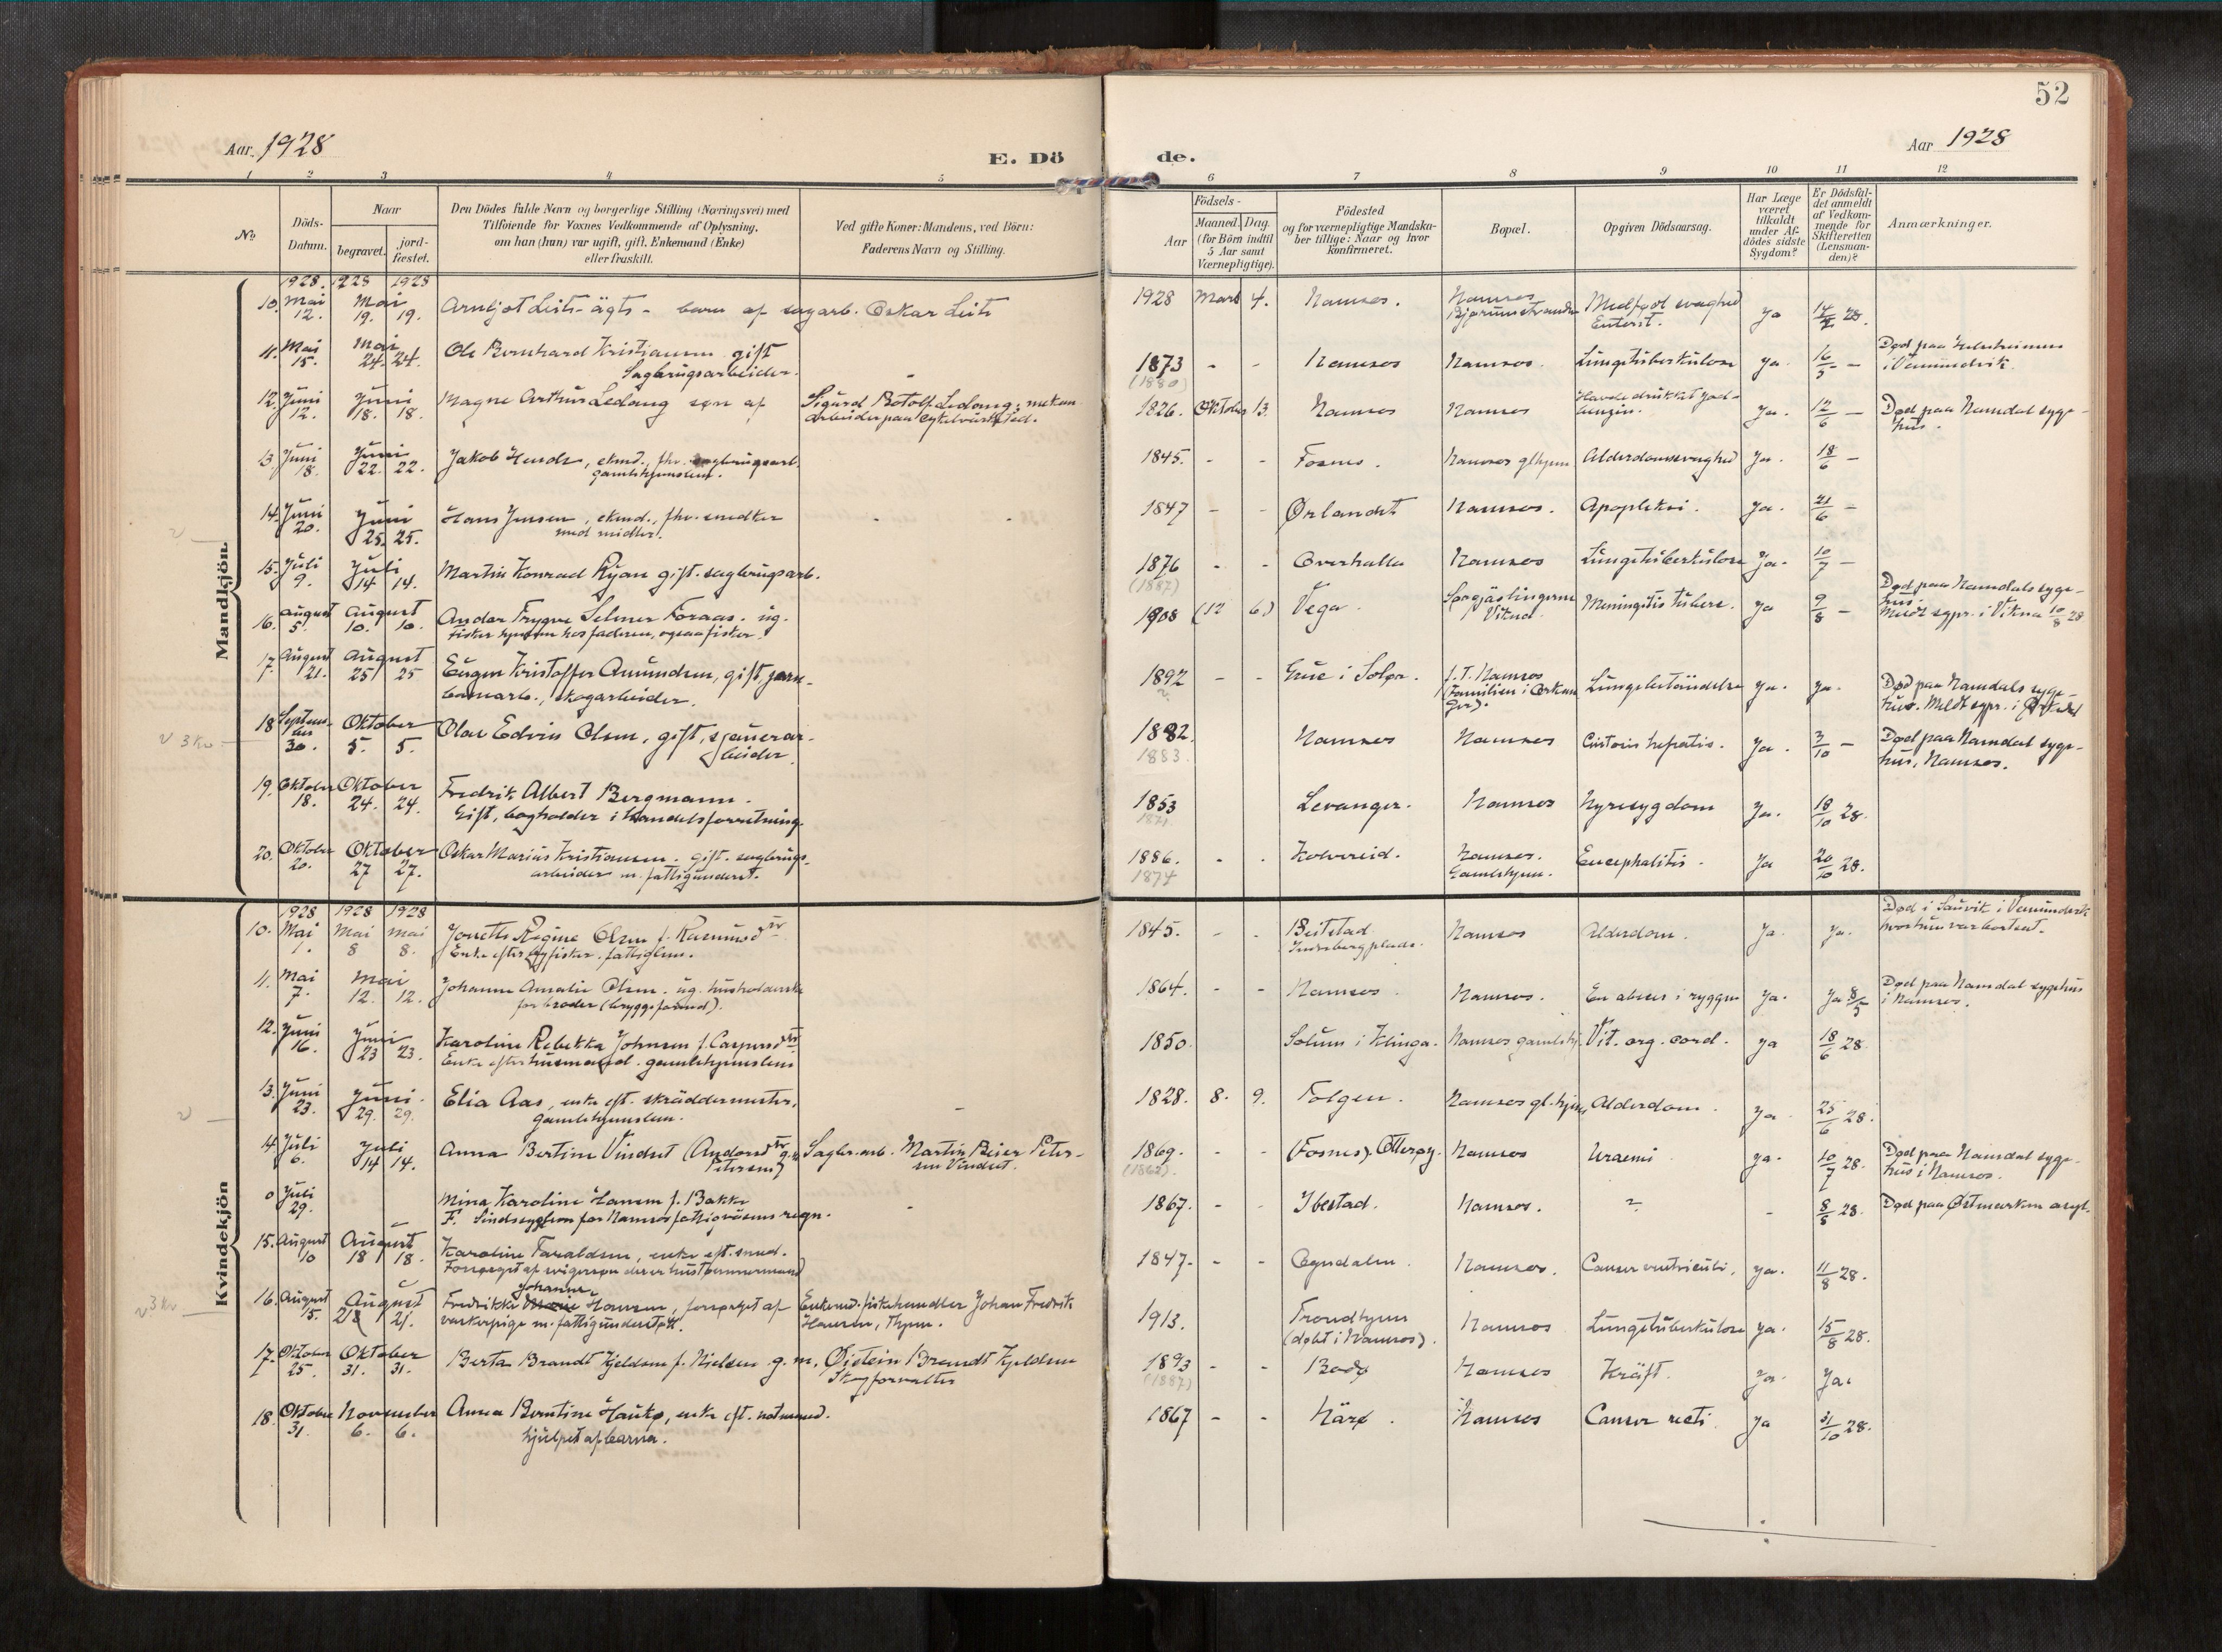 52
Aar. 1928
E. Dö
de.
Aar 1928
1 2 3 4 5
6 7 8 9 10 11 12
No
Döds-
Datum.
Naar
begravet.
jord-
fæstet.
Den Dödes fulde Navn og borgerlige Stilling (Næringsvei) med
Tilföiende for Voxnes Vedkommende af Oplysning,
om han (hun) var ugift, gift, Enkemand (Enke)
eller fraskilt.
Ved gifte Koner: Mandens, ved Börn:
Faderens Navn og Stilling.
Födsels-
Aar
Maaned. Dag.
(for Börn indtil
5 Aar samt
Værnepligtige).
Födested
og for værnepligtige Mandska-
ber tillige: Naar og hvor
Konfirmeret.
Bopæl.
Opgiven Dödsaarsag.
Har Læge
været
tilkaldt
under Af-
dödes sidste
Sygdom?
Er Dödsfal-
det anmeldt
af Vedkom-
mende for
Skifteretten
(Lensman-
den)?
Anmærkninger.
Mandkjön.
1928. 1928 1928
10. Mai 12. Mai 19. 19.
Arnljot Leits - ägte - barn af sagarb. Oskar Leits
1928 Mars 4. Namsos. Namsos
Medfødt svaghed
Enterit. Ja 28.
11. Mai 15. Mai 24. 24.
Ole Bernhard Kristiansen gift
Sagbrugsarbeider.
1873 - - Namsos Namsos. Lungetuberkulose Ja. 16/5 -
(1880)
Død paa
i Vemundvik.
12. Juni 12. Juni 18. 18.
Magne Arthur Ledang søn af
Sigurd Botolf Ledang, mekan.
arbeider paa cykelværksted.
1826. Oktober 13. Namsos Namsos
Havde drukket
benzin. Ja. 12/6 -
Død paa Namdal syge-
hus.
13. Juni 18. Juni 22. 22.
Jakob , ekmd., fhv. sagbrugsarb.
gamlehjemslem.
1845. - - Fosnes. Namsos glhjem Alderdomssvaghed Ja. 18/6 -
14. Juni 20. Juni 25. 25.
Hans Jensen, ekmd., fhv. snedker
med midler.
1847 - - Ørlandet Namsos. Apopleksi. Ja. 21/6 -
15. Juli 9. Juli 14 14.
Martin Konrad Ryan gift. sagbrugsarb.
1876 - - Overhalla Namsos Lungetuberkulose Ja. 10/7 -
(1887)
16. August 5. August 10. 10.
Andor Trygve Selmer Foraas. ug.
fisker hjemme hos faderen, ogsaa fisker.
1908 (12 6.) Vega.
Vikna. Meningitis tuberc. Ja 9/8 -
Død paa Namdals syge-
hus.
Meldt sgpr. i Vikna 10/8 28
17. August 21. August 25 25
Eugen Kristoffer Amundsen, gift, jern-
banearb., skogarbeider.
1892 - - Grue i Solør. f. T. Namsos
(Familien i Orkan-
ger). Lungebetændelse Ja. Ja.
Død paa Namdals syge-
hus. Meldt sgpr. i Orkdal
v 3 kr
18 Septem-
ber 30. Oktober 5. 5.
Olav Edvin Olsen, gift, sjauerar-
beider.
1882. Namsos Namsos Cirrosis hepatis. Ja. 3/10 -
1883.
Død paa Namdal syge-
hus, Namsos.
19. Oktober 18. Oktober 24. 24.
Fredrik Albert Bergmann.
Gift, bogholder i Handelsforretning.
1853 Levanger. Namsos Nyresygdom Ja. 18/10 28.
20. Oktober 20. Oktober 27 27.
Oskar Marius Kristiansen. gift. sagbrugs-
arbeider m. fattigunderst.
1886. - - Kolvereid. Namsos.
Gamlehjem. Encephalitis. Ja 20/10 28.
1874
Kvindekjön
1928 1928 1928
10. Mai 1. Mai 8 mai 8.
Jonette Regine Olsen f. Rasmusdtr
Enke efter fisker. fattiglem.
1845. - - Beitstad. Namsos Alderdom. Ja. Ja.
Død i i Vemundvik
hvor hun var bortsat.
11. Mai 7. Mai 12. 12.
Johanna Amalie Olsen. ug. husholderske
for broder (bryggeformand).
1864. - - Namsos Namsos. En absces i ryggen Ja. Ja 8/5
Død paa Namdal sygehus
i Namsos.
12. Juni 16. Juni 23 23.
Karoline Rebekka Johnsen f. Caspersdtr
Enke efter husmand. gamlehjemslem
1850. Solum i Klinga. Namsos gamlehj. Vit. org. cord. Ja 18/6 28.
13. Juni 23. Juni 29. 29.
Elia Aas, enke eft. skräddermester,
gamlehjemslem.
1828. 8. 9. Folgen. Namsos gl.hjem Alderdom. Ja. 25/6 28.
14 Juli 6. Juli 14 14.
Anna Bertine Vindset (Andorsdtr g.m
Petersen)
Sagbr.arb. Martin Beier Peter-
sen Vindset.
1869. - - (Fosnes). Otterøy. Namsos Uraemi Ja. 10/7 28.
(1862).
Død paa Namdal syge-
hus i Namsos.
0 Juli 29.
Mina Karoline Hansen f. Bakke
F. Sindssyglem for Namsos fattigvæsens regn.
1867. - - Ibestad. Namsos. ? - 8/8 28.
Død paa Østmarken asyl.
15. August 10 August 18 18.
Karoline Taraldsen, enke eft. smed.
Forsørget af svigersøn
1847. - - Ogndalen. Namsos. Cancer ventriculi. Ja. 11/8 28.
v 3 kr
16. August 15. August 21. 21.
Johanne
Fredrikke Marie Hansen, forsørget af
væverpige m. fattigunderstøtt.
Enkemd. fiskehandler Johan Fredrik
Hansen, Thjem.
1913. Trondhjem
(døbt i Namsos). Namsos Lungetuberkulose Ja. 15/8 28.
17. Oktober 25. Oktober 31. 31.
Berta Brandt Kjeldsen f. Nielsen g.m. Øistein Brandt Kjeldsen
Skogforvalter
1893 - - Bodø Namsos Kräft. Ja. Ja.
(1887)
18. Oktober 31. November 6. 6.
Anna Berntine Hauko, enke eft. notmand.
hjulpet af barna.
1867 - - Närø. Namsos Cancer recti. Ja 31/10 28.